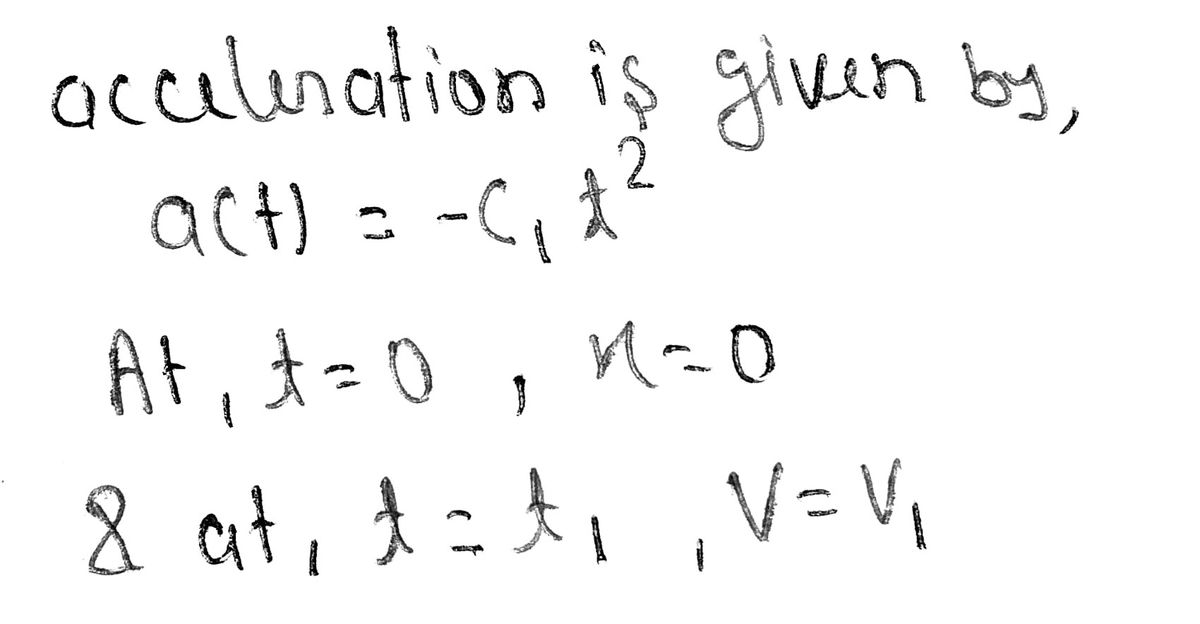 acceleration is given by,
a(t) = -C₁ t²
At, t = 0, x = 0
& at, t = t₁, V = V₁